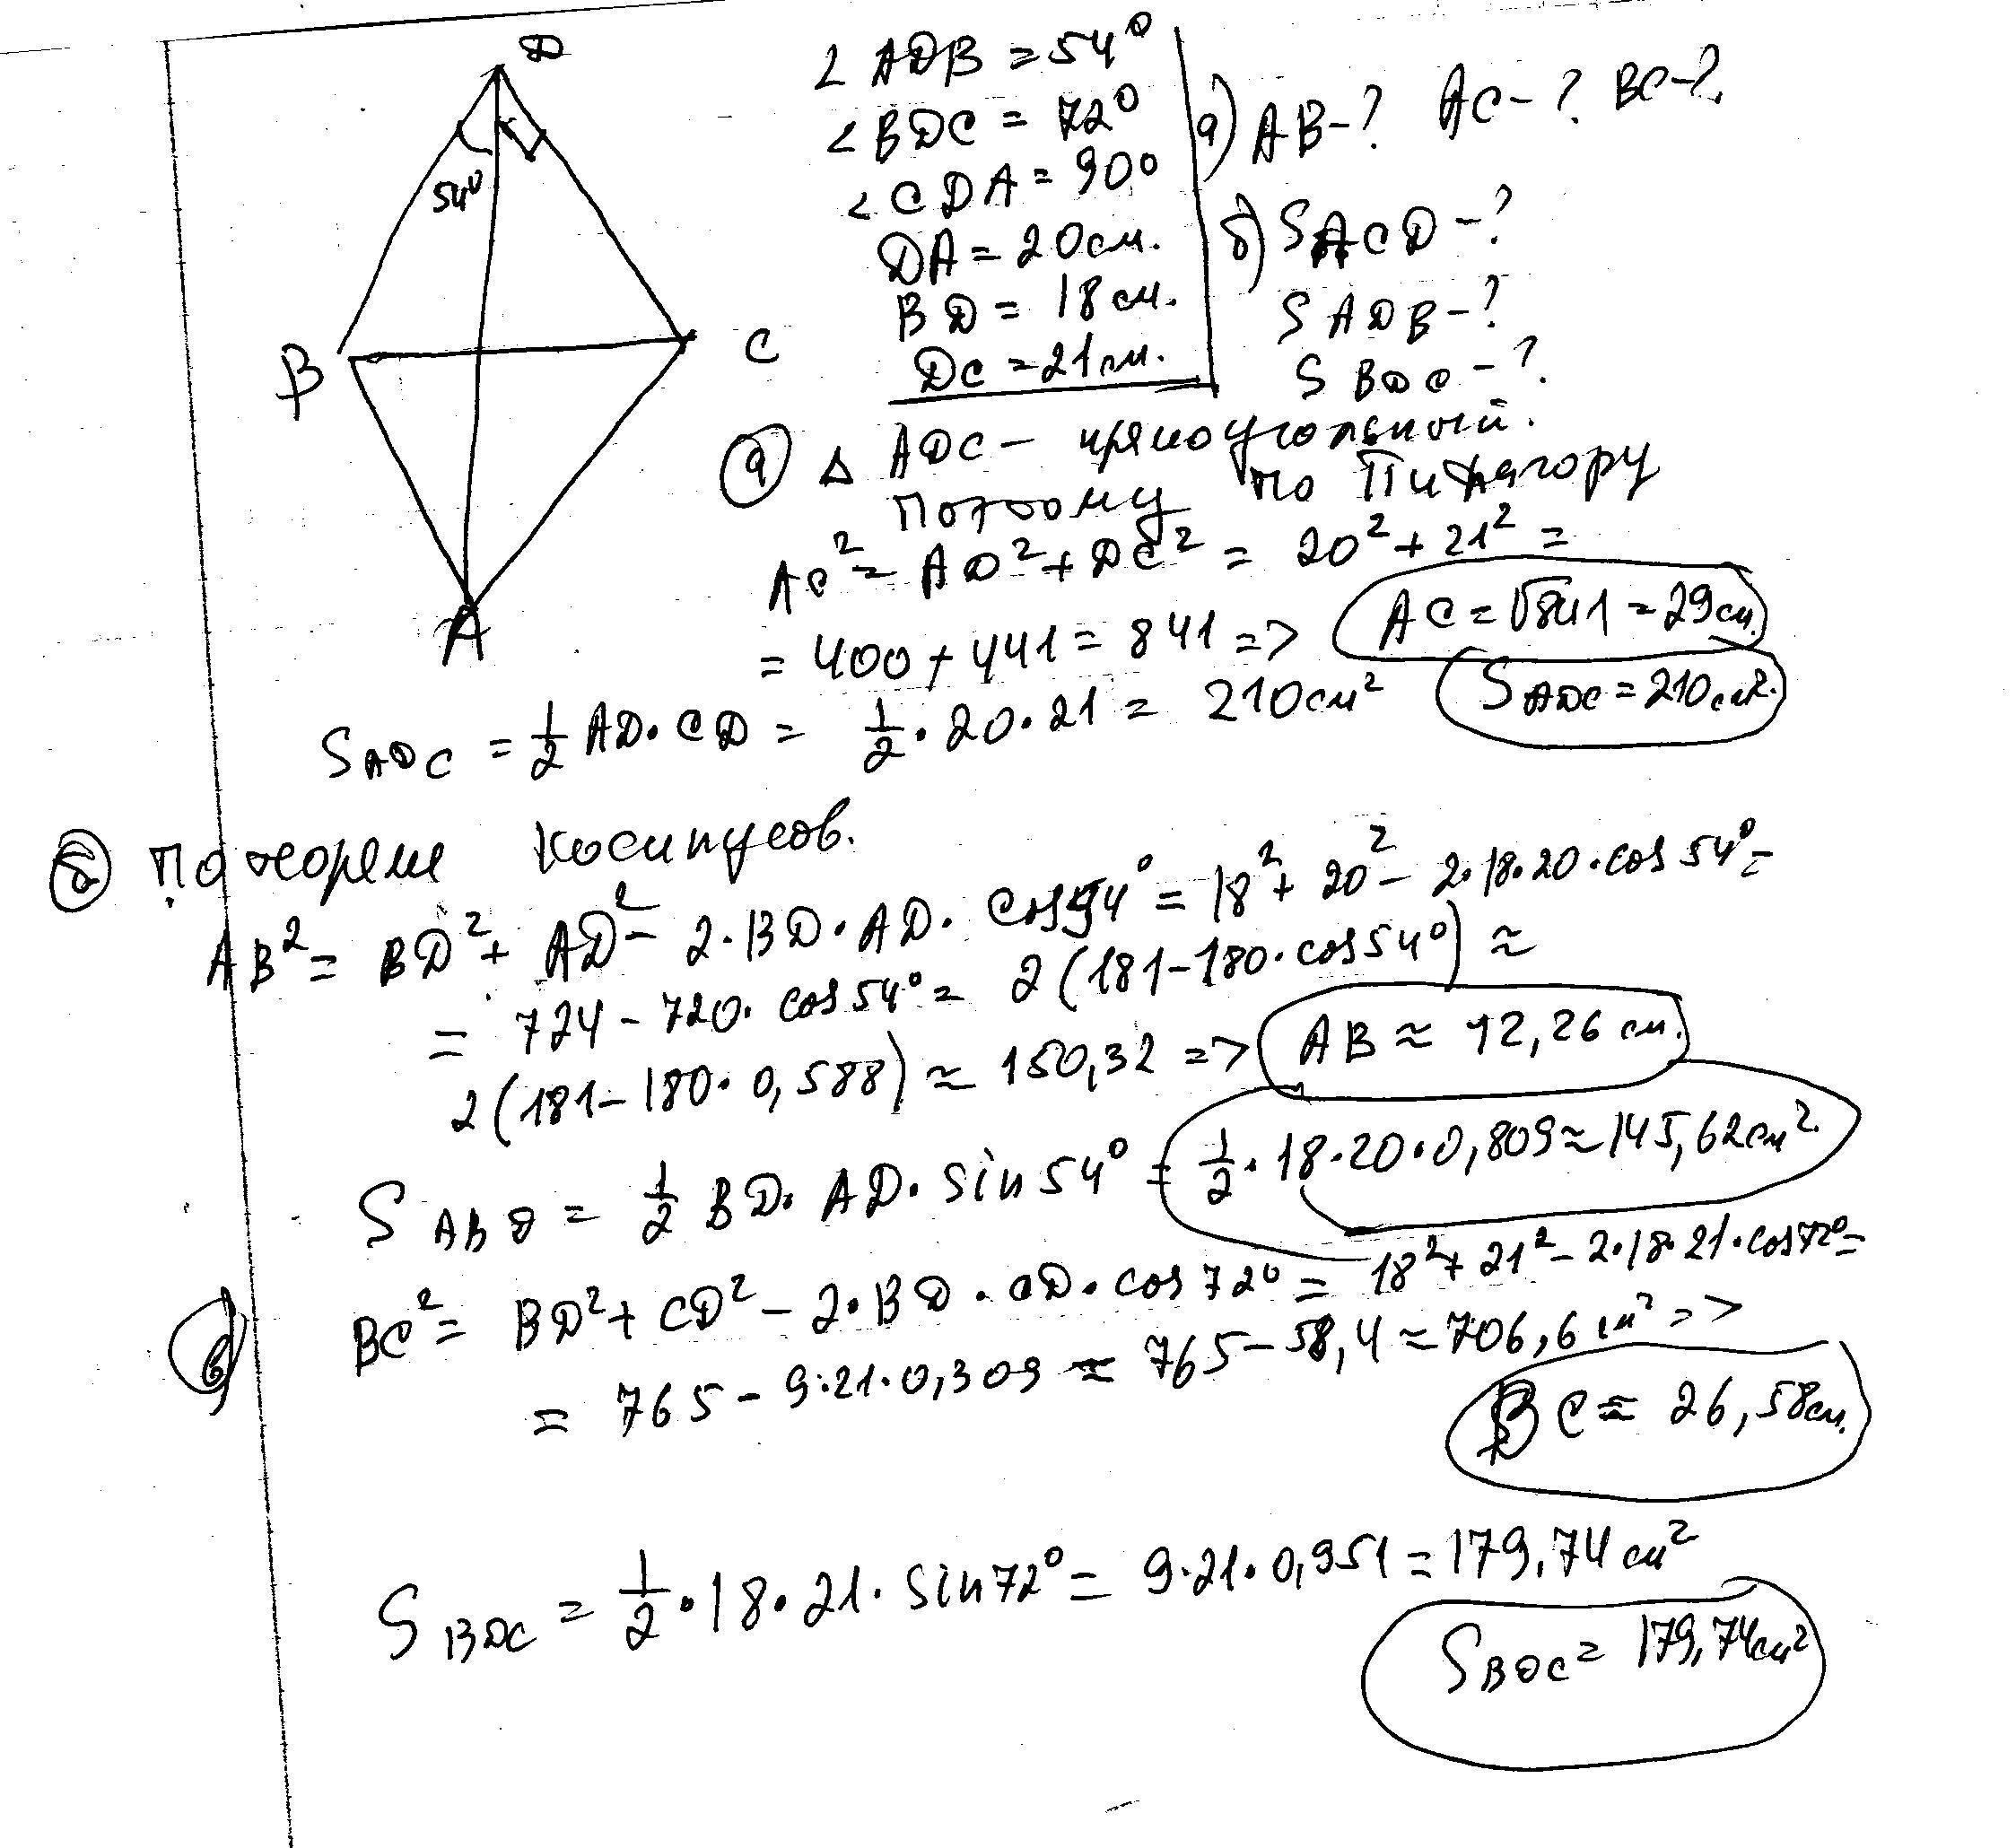 D
54°
B
C
A
∠ ADB = 54°
∠ BDC = 72°
∠ CDA = 90°
DA = 20см.
BD = 18см.
DC = 21см.
а) AB-? AC-? BC-?
б) SACD-?
SADB-?
SBDC-?
а) Δ ADC – прямоугольный.
Поэтому по Пифагору
AC² = AD² + DC² = 20² + 21² =
= 400 + 441 = 841 => AC = √841 = 29см.
S ADC = 1/2 AD · CD = 1/2 · 20 · 21 = 210см² S ADC = 210см².
б) По теореме косинусов.
AB² = BD² + AD² - 2·BD·AD·cos54° = 18² + 20² - 2·18·20·cos54° =
= 724 - 720·cos54° = 2(181-180·cos54°) ≈
2(181-180·0,588) ≈ 150,32 => AB ≈ 12,26 см.
S ABD = 1/2 BD·AD·sin54° = 1/2·18·20·0,809 ≈ 145,62см².
в) BC² = BD² + CD² - 2·BD·CD·cos72° = 18² + 21² - 2·18·21·cos72° =
= 765 - 9·21·0,309 ≈ 765 - 58,4 ≈ 706,6см² =>
BC ≈ 26,58см.
S BDC = 1/2·18·21·sin72° = 9·21·0,951 = 179,74см²
S BDC = 179,74см²